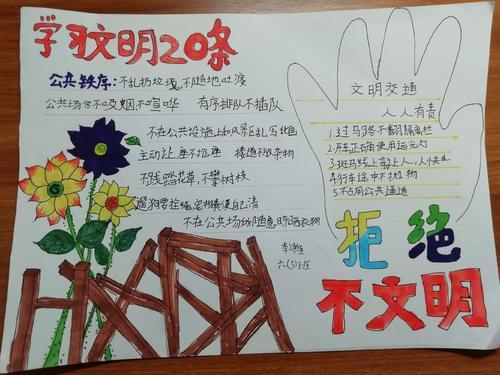 学习文明20条
公共秩序：不乱扔垃圾，不随地吐痰
公共场合不吸烟不喧哗 有序排队不插队
不在公共设施上和风景区乱写乱画
主动让座不抢座 楼道不放杂物
不践踏花草，不攀树枝
遛狗要拴绳，宠物粪便自己清
不在公共场所随意晾晒衣物
六(3)班
文明交通
人人有责
1.过马路不翻隔离栏
2.开车正确使用远光灯
3.斑马线上车让人，人快走
4.行车途中不抛物
5.不占用公共通道
拒绝
不文明